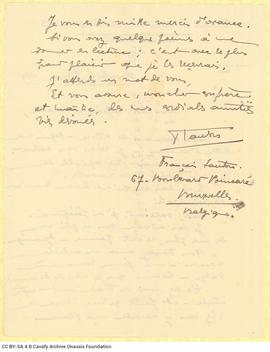 Je vous en dis mille mercis d'avance.
Si vous avez quelques poèmes à me
donner en lecture ; c'est avec le plus
grand plaisir que je les recevrai.
J'attends un mot de vous,
Et vous assure, mon cher confrère
et maître, de mes cordiales amitiés
très dévouées.
François
67 - Boulevard Poincaré
Bruxelles.
Belgique.
CC BY-SA 4.0 Cavafy Archive Onassis Foundation